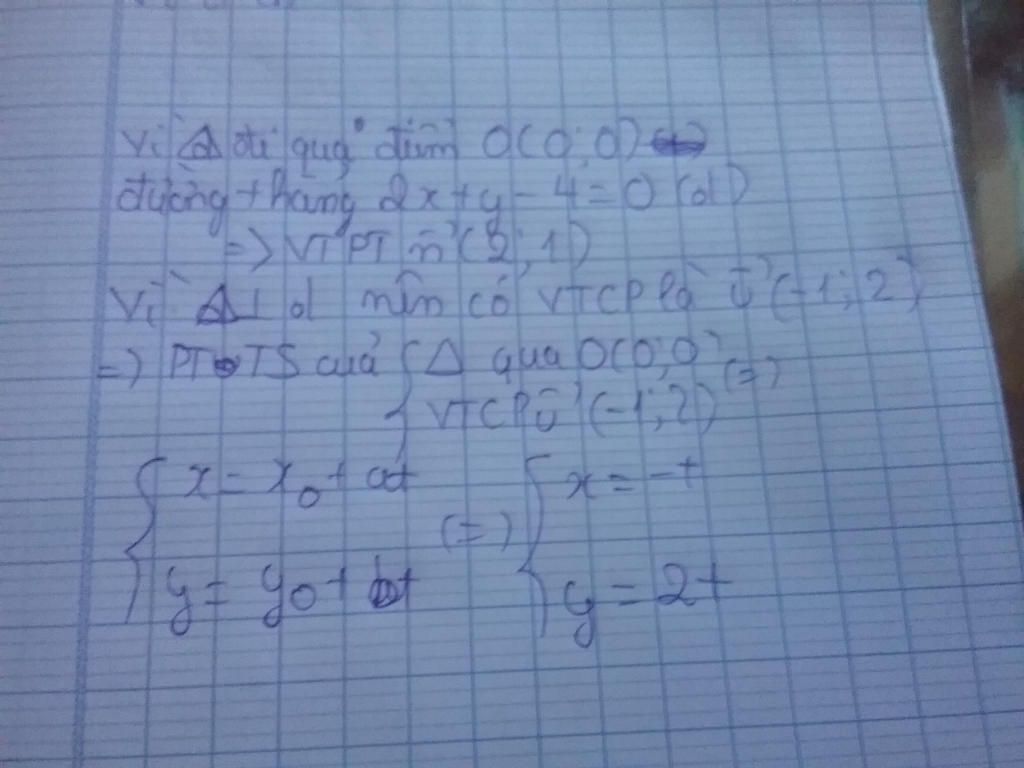 Vì Δ đi qua điểm O(0;0)
đường thẳng 2x+y-4=0 (d)
=> VTPT n (2;1)
Vì Δ⊥d nên có VTCP là u (-1;2)
=> PTTS của { Δ qua O(0;0)
VTCP u (-1;2) (=)
{ x = x₀ + at (=) { x = -t
y = y₀ + bt y = 2t